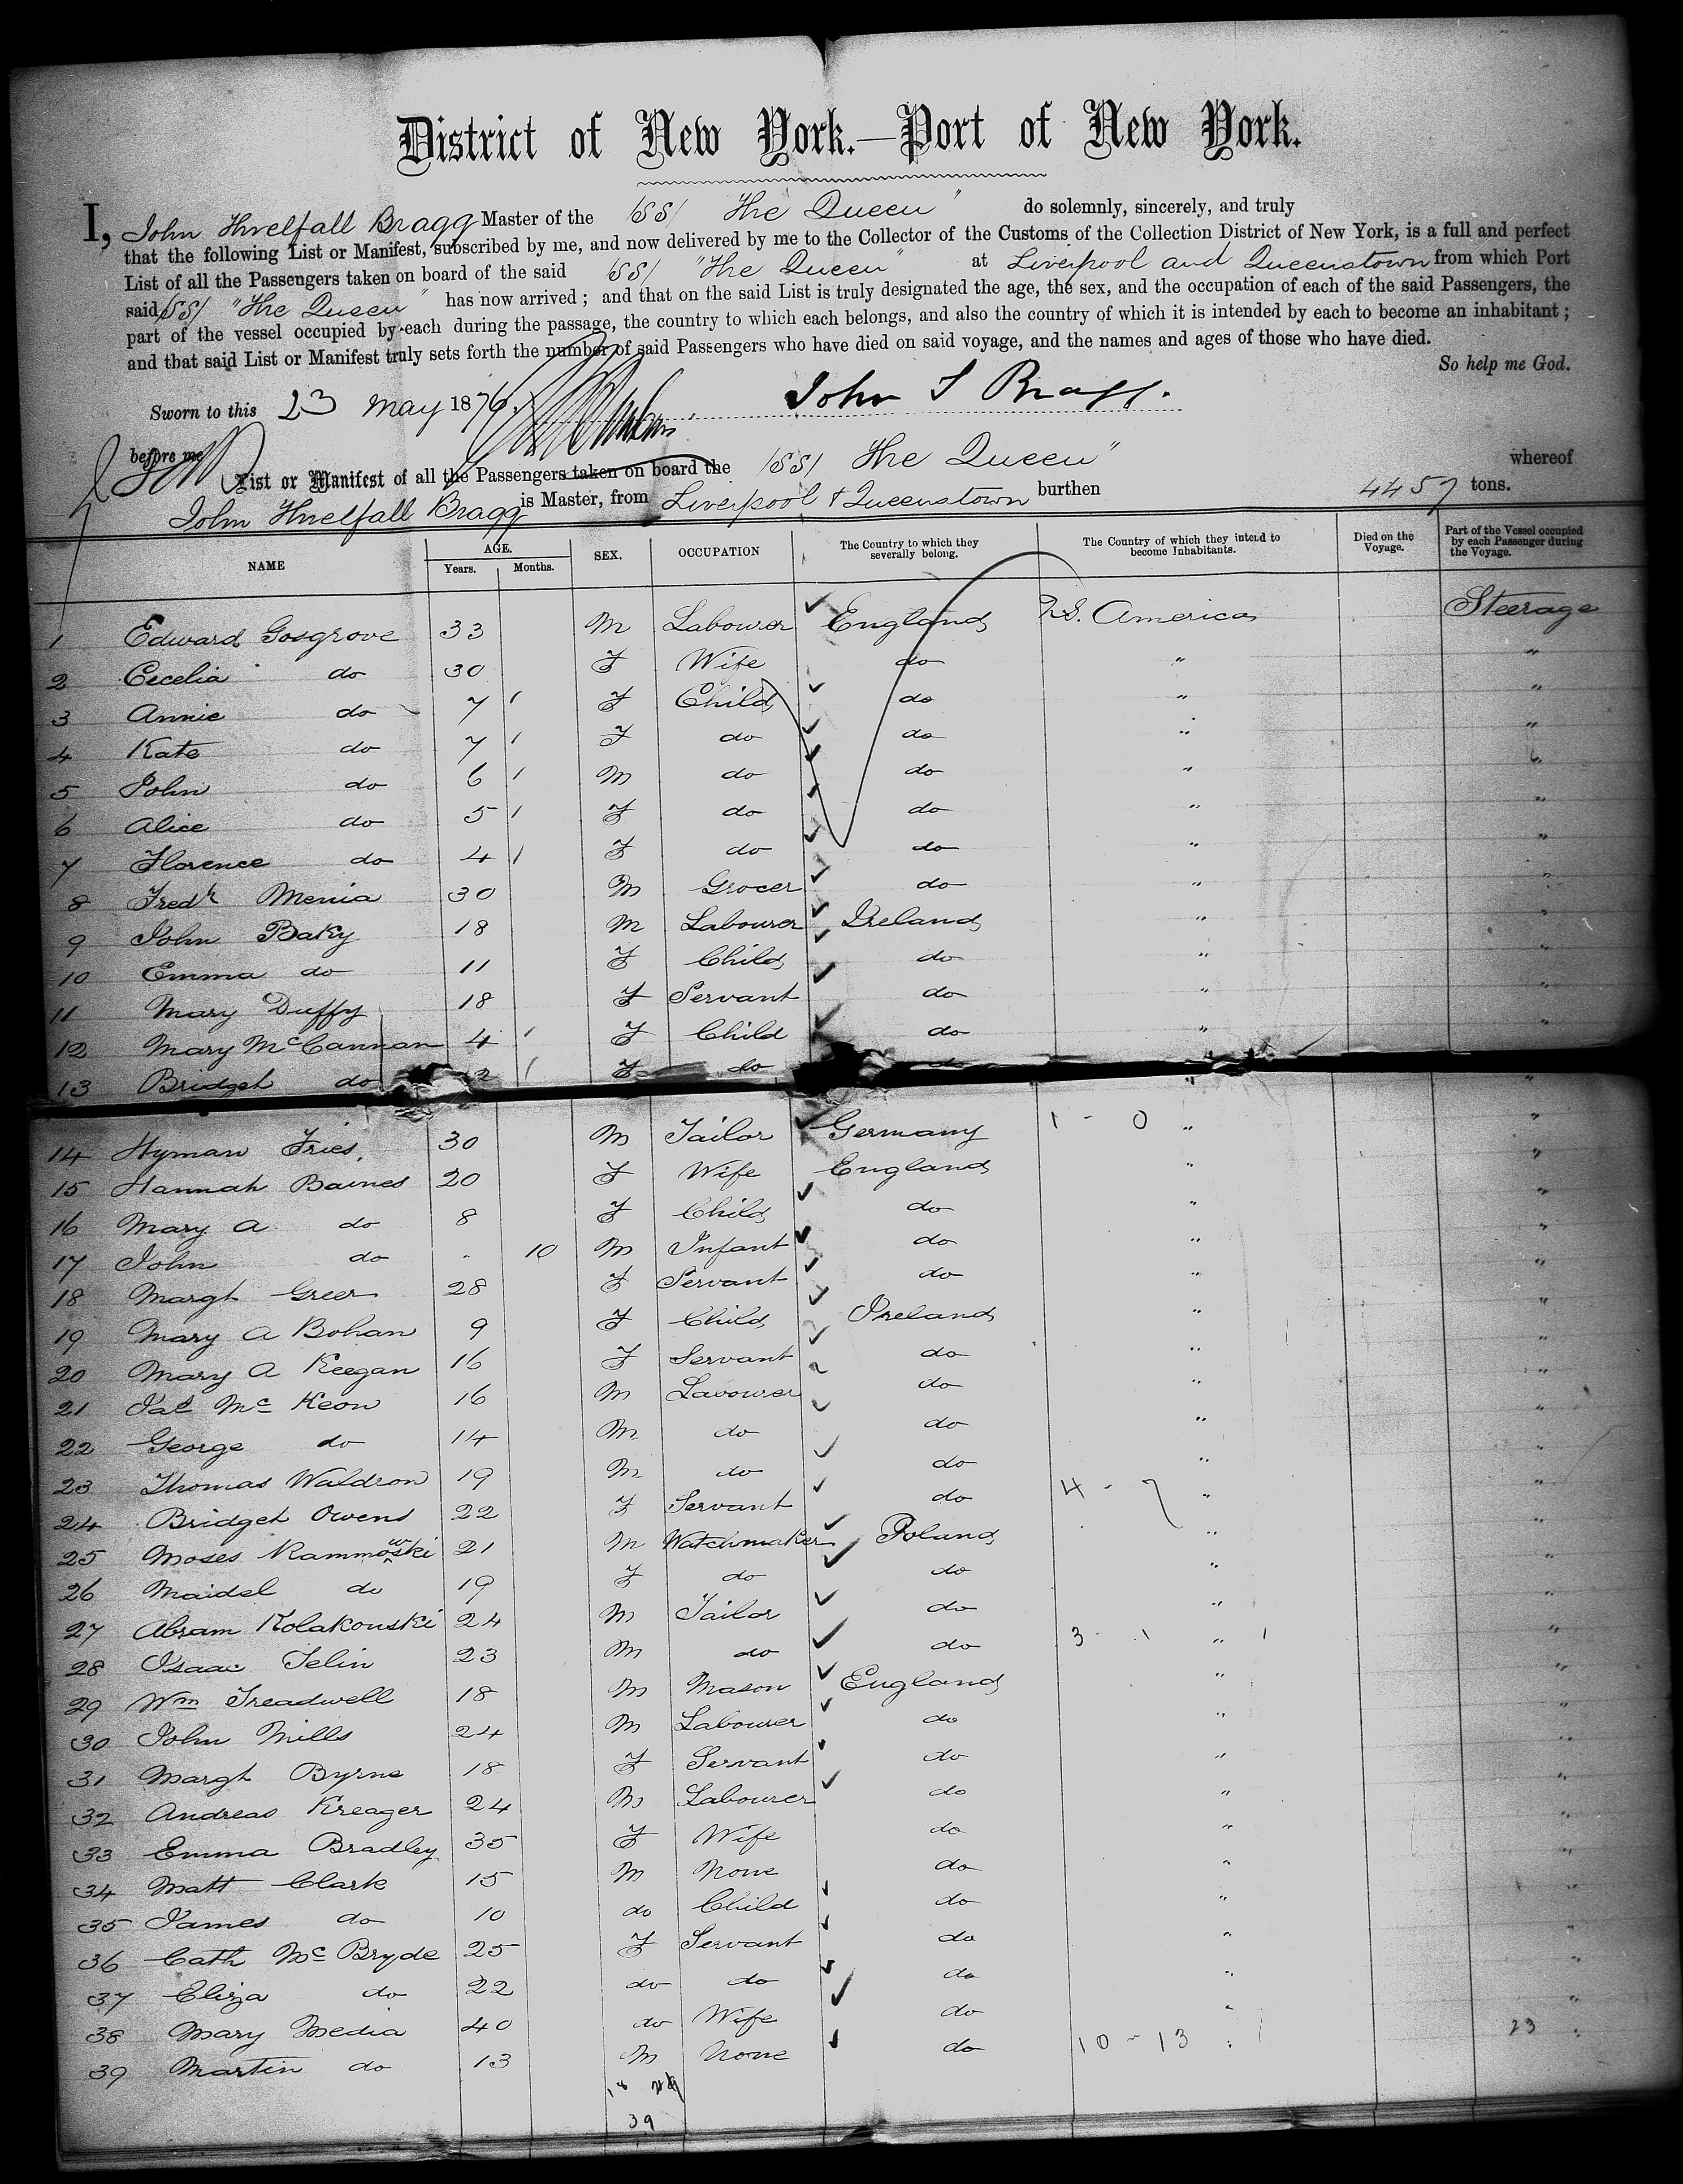 District of New York.—Port of New York.
I, John Threlfall Bragg Master of the SS "The Queen" do solemnly, sincerely, and truly
that the following List or Manifest, subscribed by me, and now delivered by me to the Collector of the Customs of the Collection District of New York, is a full and perfect
List of all the Passengers taken on board of the said SS "The Queen" at Liverpool and Queenstown from which Port
said SS "The Queen" has now arrived; and that on the said List is truly designated the age, the sex, and the occupation of each of the said Passengers, the
part of the vessel occupied by each during the passage, the country to which each belongs, and also the country of which it is intended by each to become an inhabitant;
and that said List or Manifest truly sets forth the number of said Passengers who have died on said voyage, and the names and ages of those who have died.
So help me God.
Sworn to this 23 May 1876. John T Bragg.
before me
List or Manifest of all the Passengers taken on board the SS The Queen" whereof
John Threlfall Bragg is Master, from Liverpool & Queenstown burthen 4457 tons.
NAME AGE. Years. Months. SEX. OCCUPATION The Country to which they severally belong. The Country of which they intend to become Inhabitants. Died on the Voyage. Part of the Vessel occupied by each Passenger during the Voyage.
1 Edward Gosgrove 33 M Labourer England U.S. America Steerage
2 Cecelia do 30 F Wife do " "
3 Annie do 7 F Child do " "
4 Kate do 7 F do do " "
5 John do 6 M do do " "
6 Alice do 5 F do do " "
7 Florence do 4 F do do " "
8 Fredk Menia 30 M Grocer do " "
9 John Baky 18 M Labourer Ireland " "
10 Emma do 11 F Child do " "
11 Mary Duffy 18 F Servant do " "
12 Mary McCannan 4 F Child do " "
13 Bridget do 2 F do do " "
14 Hyman Fries. 30 M Tailor Germany 1 - 0 " "
15 Hannah Baines 20 F Wife England " "
16 Mary A do 8 F Child do " "
17 John do - 10 M Infant do " "
18 Margt Greer 28 F Servant do " "
19 Mary A Bohan 9 F Child Ireland " "
20 Mary A Keegan 16 F Servant do " "
21 Pat Mc Keon 16 M Labourer do " "
22 George do 14 M do do " "
23 Thomas Waldron 19 M do do " "
24 Bridget Owens 22 F Servant do 4 - 7 " "
25 Moses Kammowski 21 M Watchmaker Poland " "
26 Maidel do 19 F do do " "
27 Abram Kolakouski 24 M Tailor do " "
28 Isaac Telin 23 M do do 3 - 1 " "
29 Wm Treadwell 18 M Mason England " "
30 John Mills 24 M Labourer do " "
31 Margt Byrne 18 F Servant do " "
32 Andreas Kreager 24 M Labourer do " "
33 Emma Bradley 35 F Wife do " "
34 Matt Clark 15 M None do " "
35 James do 10 do Child do " "
36 Cath McBryde 25 F Servant do " "
37 Eliza do 22 do do do " "
38 Mary Media 40 do Wife do " "
39 Martin do 13 M None do 10 - 13 " 23 "
39